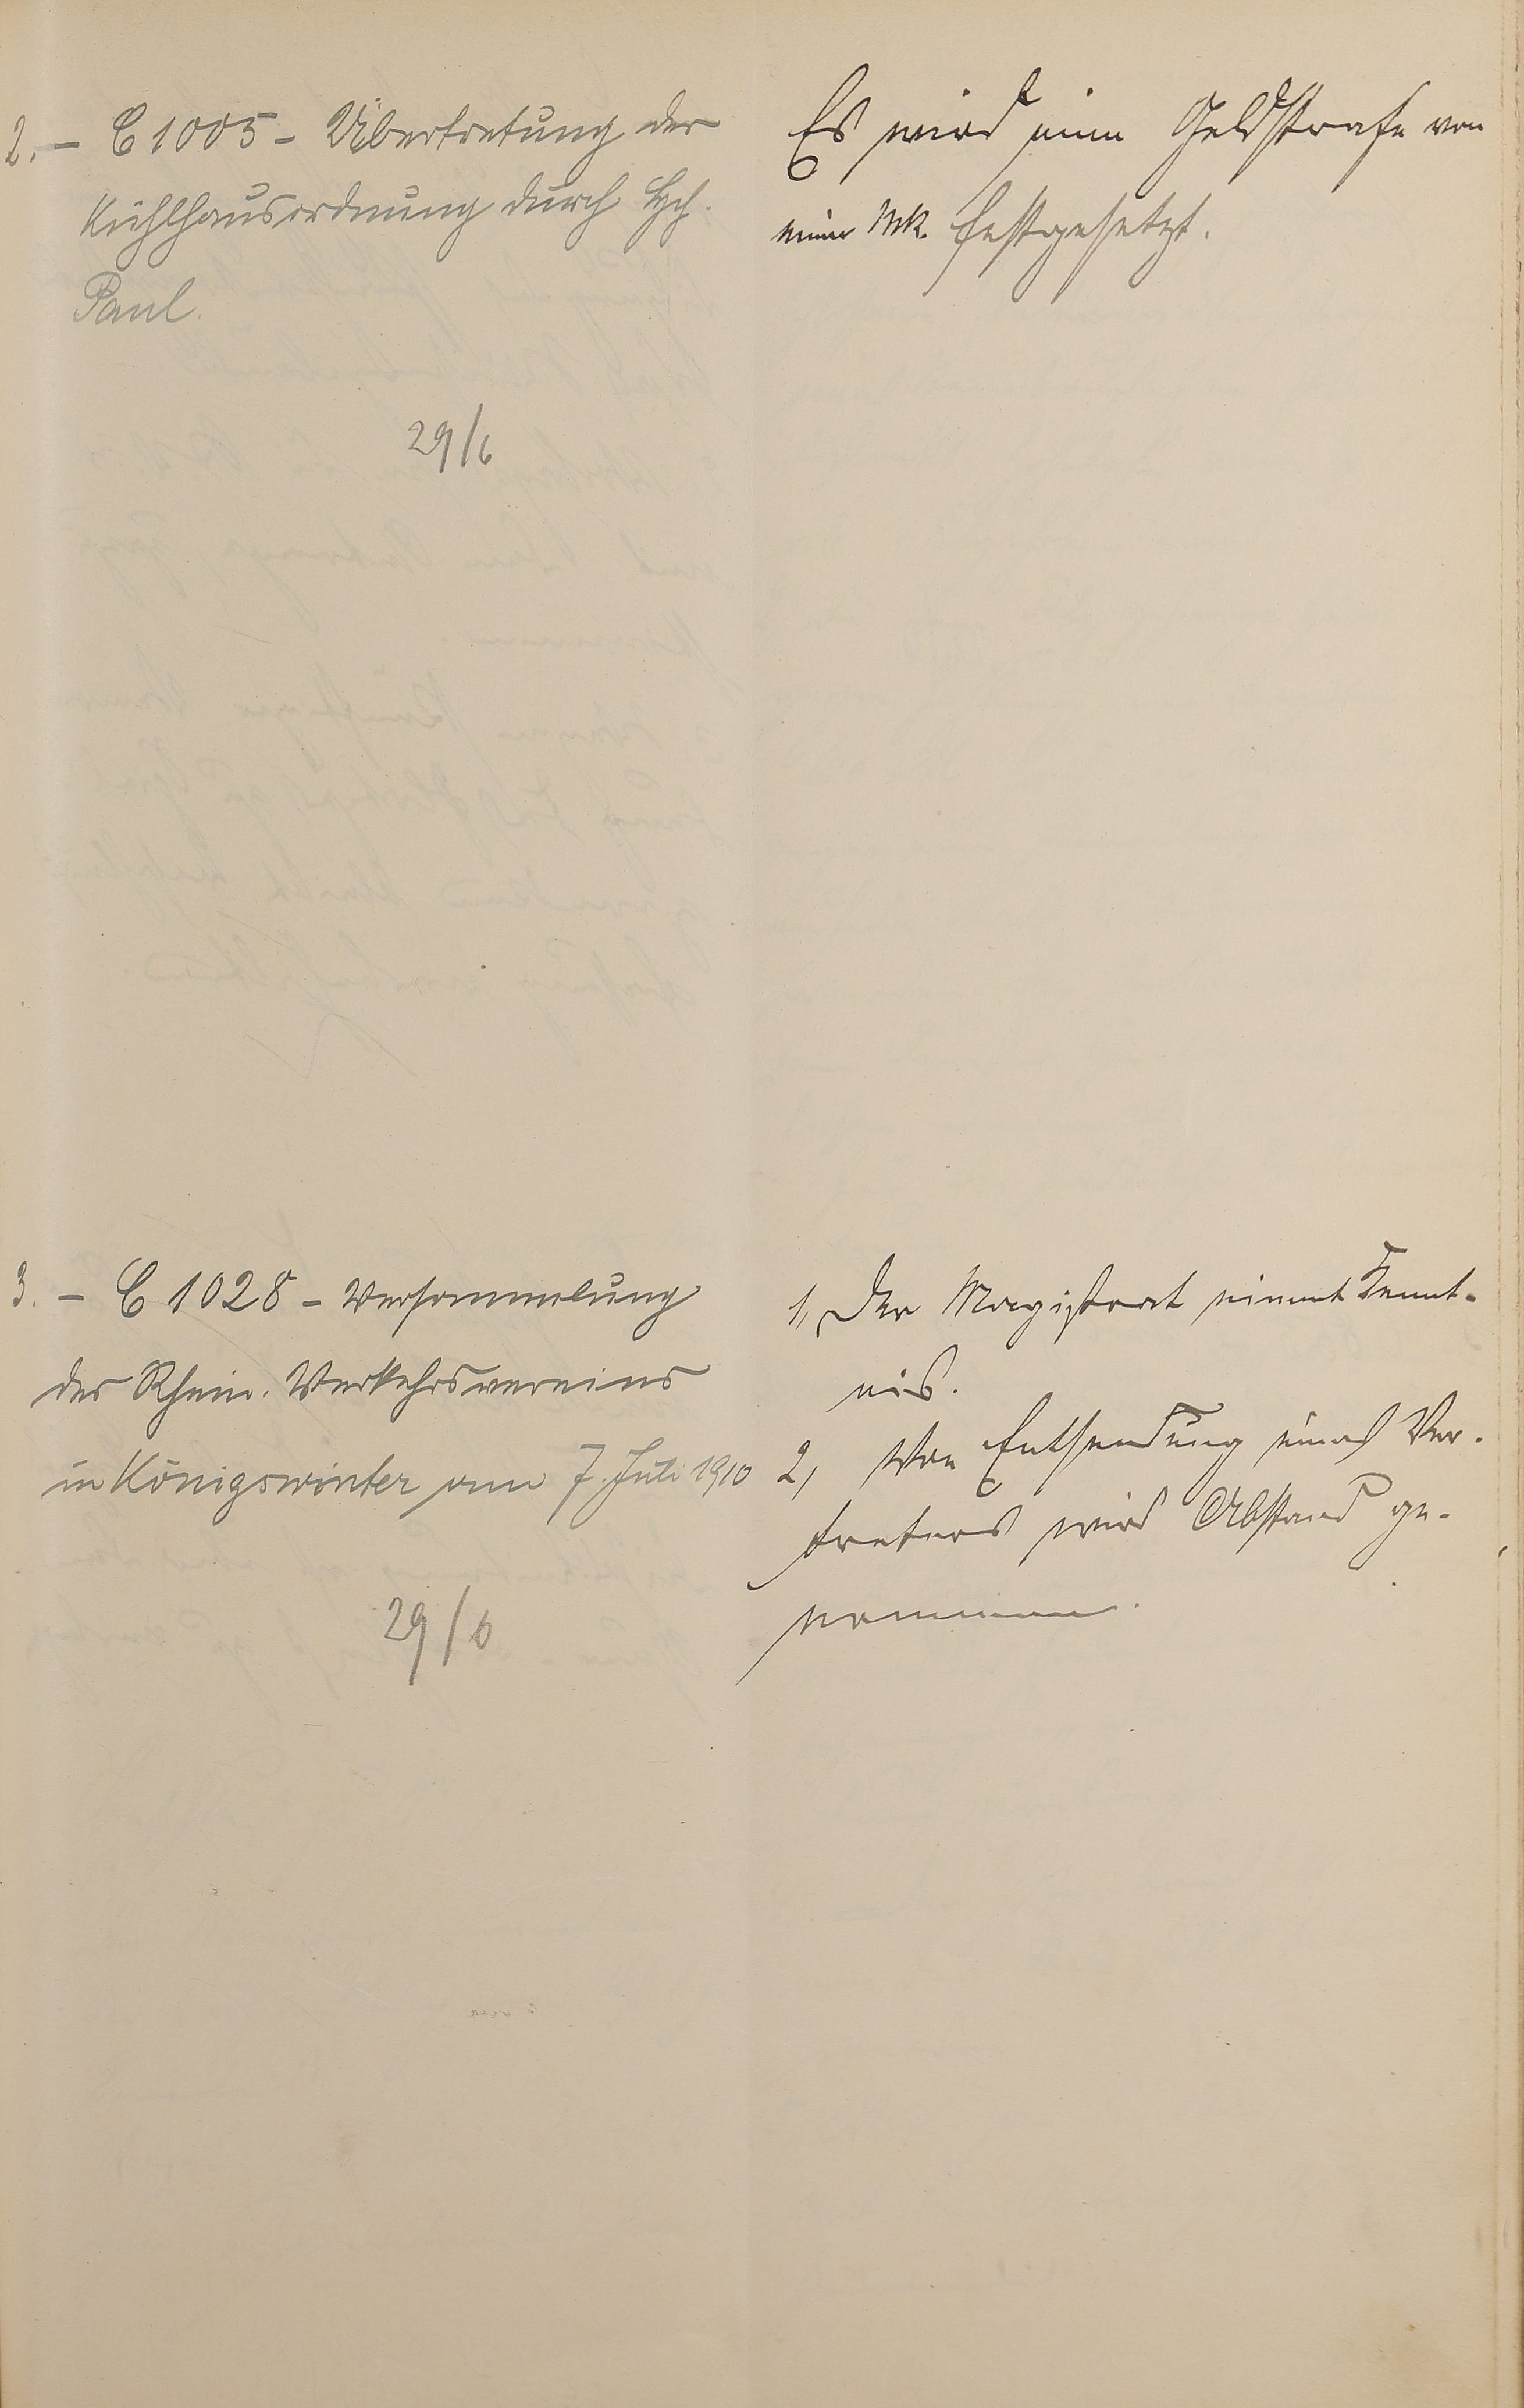 2. - C 1005 - Übertretung der
Kühlhausordnung durch Hch.
Paul.
29/6
Es wird eine Geldstrafe von
einer Mk. festgesetzt.
3. - C 1028 - Versammlung
des Rhein. Verkehrsvereins
in Königswinter am 7. Juli 1910
29/6
1, Der Magistrat nimmt Kennt-
nis.
2, Von Entsendung eines Ver-
treters wird Abstand ge-
nommen.